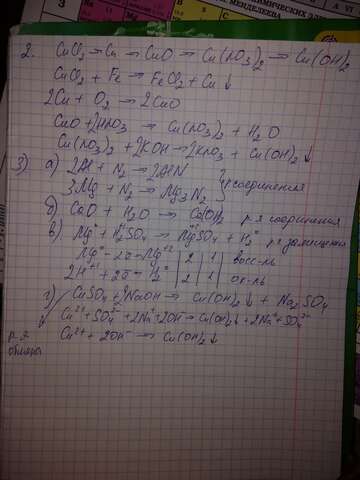 МЕНДЕЛЕЕВА
2. CuCl₂ → Cu → CuO → Cu(NO₃)₂ → Cu(OH)₂
CuCl₂ + Fe → FeCl₂ + Cu ↓
2Cu + O₂ → 2CuO
CuO + 2HNO₃ → Cu(NO₃)₂ + H₂O
Cu(NO₃)₂ + 2KOH → 2KNO₃ + Cu(OH)₂ ↓
3) а) 2Al + N₂ → 2AlN
3Mg + N₂ → Mg₃N₂ } р соединения
б) CaO + H₂O → Ca(OH)₂ р-я соединения
в) Mg⁰ + H₂⁺¹SO₄ → Mg⁺²SO₄ + H₂⁰ р-я замещения
Mg⁰ - 2ē → Mg⁺² | 2 | 1 | восс-ль
2H⁺¹ + 2ē → H₂⁰ | 2 | 1 | ок-ль
г) CuSO₄ + 2NaOH → Cu(OH)₂↓ + Na₂SO₄
Cu²⁺ + SO₄²⁻ + 2Na⁺ + 2OH⁻ → Cu(OH)₂↓ + 2Na⁺ + SO₄²⁻
р-я обмена
Cu²⁺ + 2OH⁻ → Cu(OH)₂↓